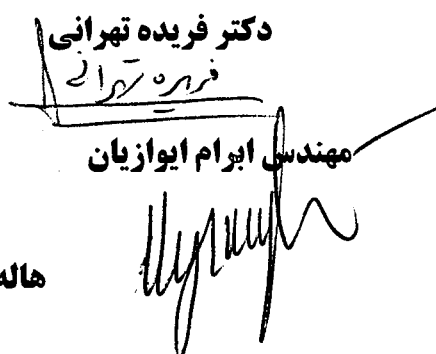 دکتر فریده تهرانی
فریده تهرانی
مهندس ابرام ایوازیان
هاله